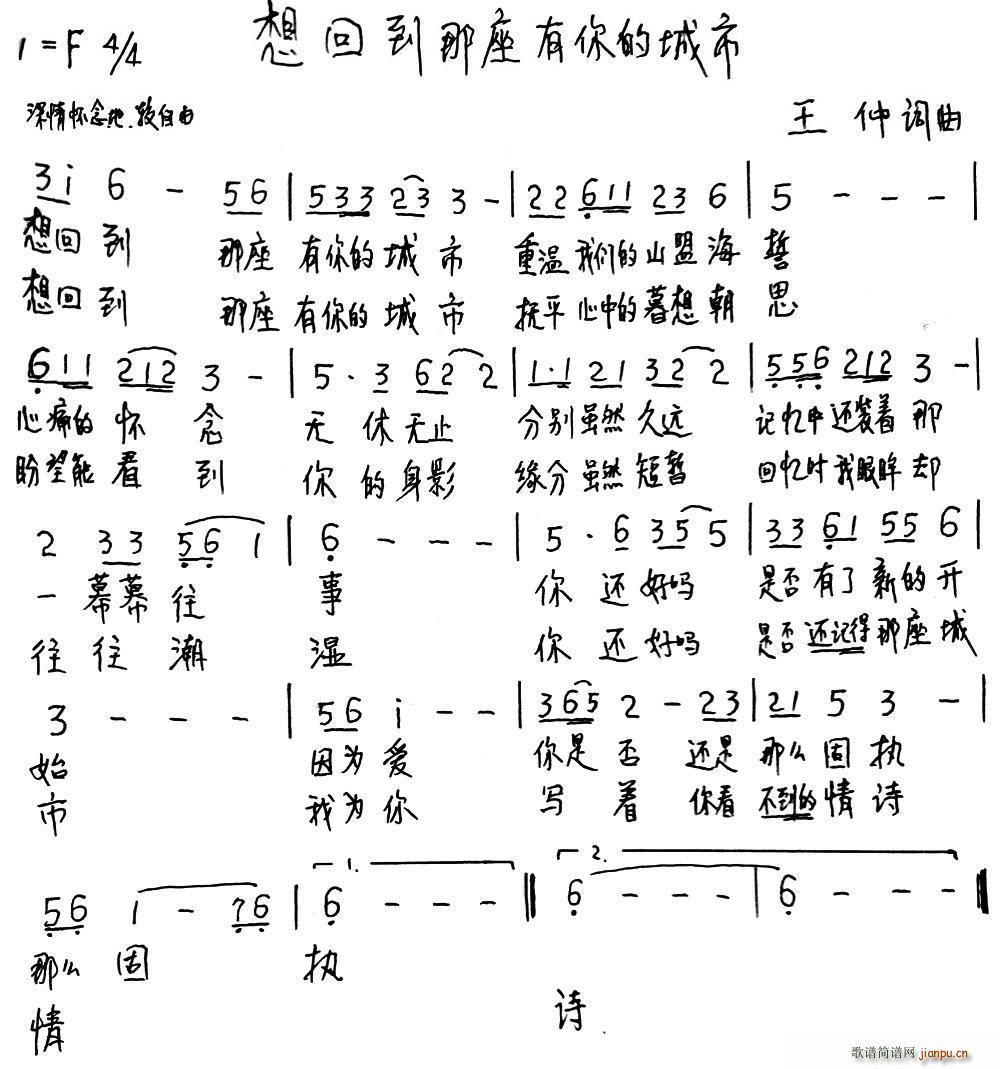 想回到那座有你的城市
1=F 4/4
深情怀念地、较自由
王 仲 词曲
3 i 6 - 5 6 | 5 3 3 2 3 3 - | 2 2 6 1 1 2 3 6 | 5 - - - |
想回到 那座 有你的城 市 重温我们的山盟海 誓
想回到 那座 有你的城 市 抚平心中的暮想朝 思
6 1 1 2 1 2 3 - | 5 · 3 6 2 2 | 1 · 1 2 1 3 2 2 | 5 5 6 2 1 2 3 - |
心痛的 怀 念 无 休无止 分别虽然久远 记忆中还装着 那
盼望能 看 到 你 的身影 缘分虽然短暂 回忆时我眼眸 却
2 3 3 5 6 1 | 6 - - - | 5 · 6 3 5 5 | 3 3 6 1 5 5 6 |
一 幕幕 往 事 你 还好吗 是否有了新的开
往 往 潮 湿 你 还好吗 是否还记得那座城
3 - - - | 5 6 i - - | 3 6 5 2 - 2 3 | 2 1 5 3 - |
始 因为爱 你是 否 还是 那么固 执
市 我为你 写 着 你看 不到的情诗
1. 2.
5 6 1 - 7 6 | 6 - - - ‖ 6 - - - | 6 - - - ‖
那么 固 执
情 诗
歌谱简谱网 jianpu.cn